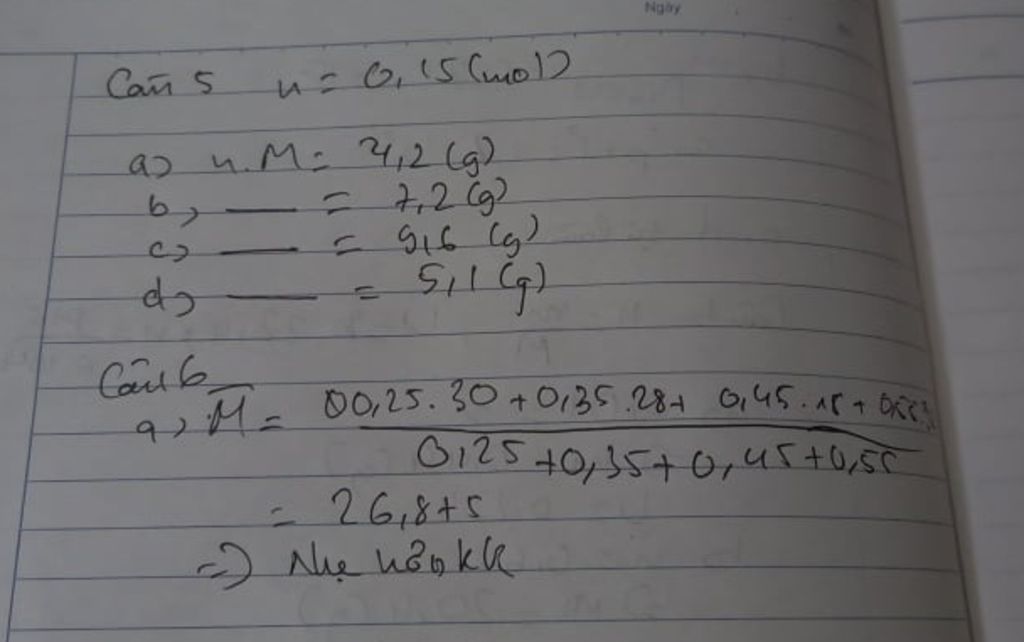 Ngày
Câu 5 n = 0,15 (mol)
a) n.M = 4,2 (g)
b) — = 7,2 (g)
c) — = 9,6 (g)
d) — = 5,1 (g)
Câu 6
a) M = 00,25.30 + 0,35.28 + 0,45.18 +
0,25 + 0,35 + 0,45 + 0,55
= 26,875
=) Nhẹ hơn kk